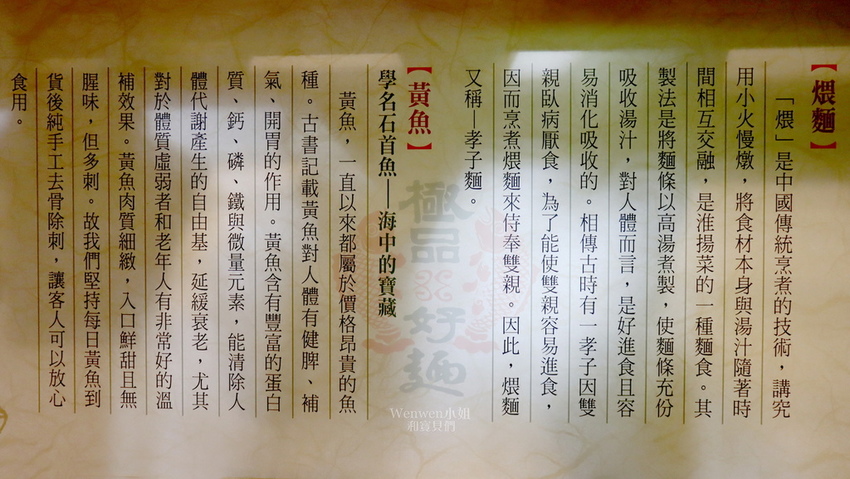 【煨麵】
「煨」是中國傳統烹煮的技術，講究
用小火慢燉，將食材本身與湯汁隨著時
間相互交融，是淮揚菜的一種麵食。其
製法是將麵條以高湯煮製，使麵條充份
吸收湯汁，對人體而言，是好進食且容
易消化吸收的。相傳古時有一孝子因雙
親臥病厭食，為了能使雙親容易進食，
因而烹煮煨麵來侍奉雙親。因此，煨麵
又稱—孝子麵。
【黃魚】
學名石首魚—海中的寶藏
黃魚，一直以來都屬於價格昂貴的魚
種。古書記載黃魚對人體有健脾、補
氣、開胃的作用。黃魚含有豐富的蛋白
質、鈣、磷、鐵與微量元素，能清除人
體代謝產生的自由基，延緩衰老，尤其
對於體質虛弱者和老年人有非常好的溫
補效果。黃魚肉質細緻，入口鮮甜且無
腥味，但多刺。故我們堅持每日黃魚到
貨後純手工去骨除刺，讓客人可以放心
食用。
極品
好麵
Wenwen小姐
和寶貝們